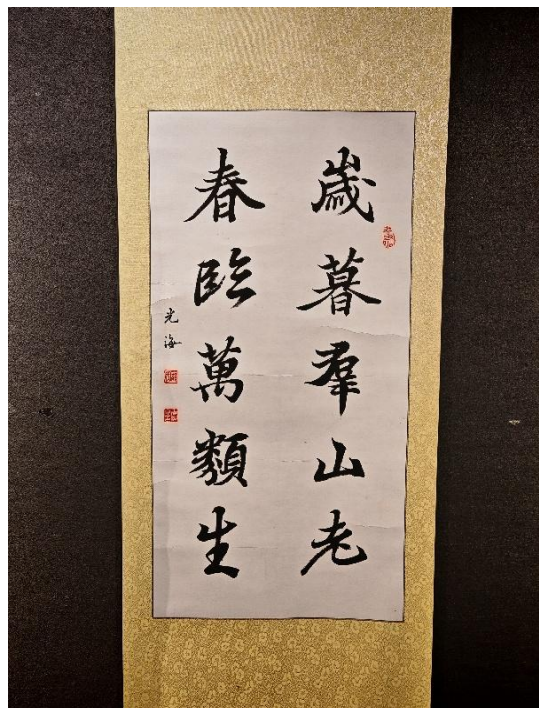 歲暮羣山老
春臨萬類生
光海